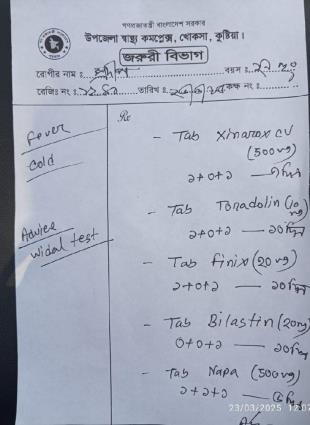 গণপ্রজাতন্ত্রী বাংলাদেশ সরকার
উপজেলা স্বাস্থ্য কমপ্লেক্স, খোকসা, কুষ্টিয়া।
জরুরী বিভাগ
রোগীর নাম : বয়স :
রেজিঃ নং : তারিখ : কক্ষ নং :
Fever
Cold
Advice
Widal test
Rx
- Tab Xinarox CV
(500mg)
১+০+১ — ৭দিন
- Tab Tonadolin (10mg)
১+০+১ — ১০দিন
- Tab Finix (20mg)
১+০+১ — ১০দিন
- Tab Bilastin (20mg)
০+০+১ — ১০দিন
- Tab Napa (500mg)
১+১+১ —
23/03/2025 12:07